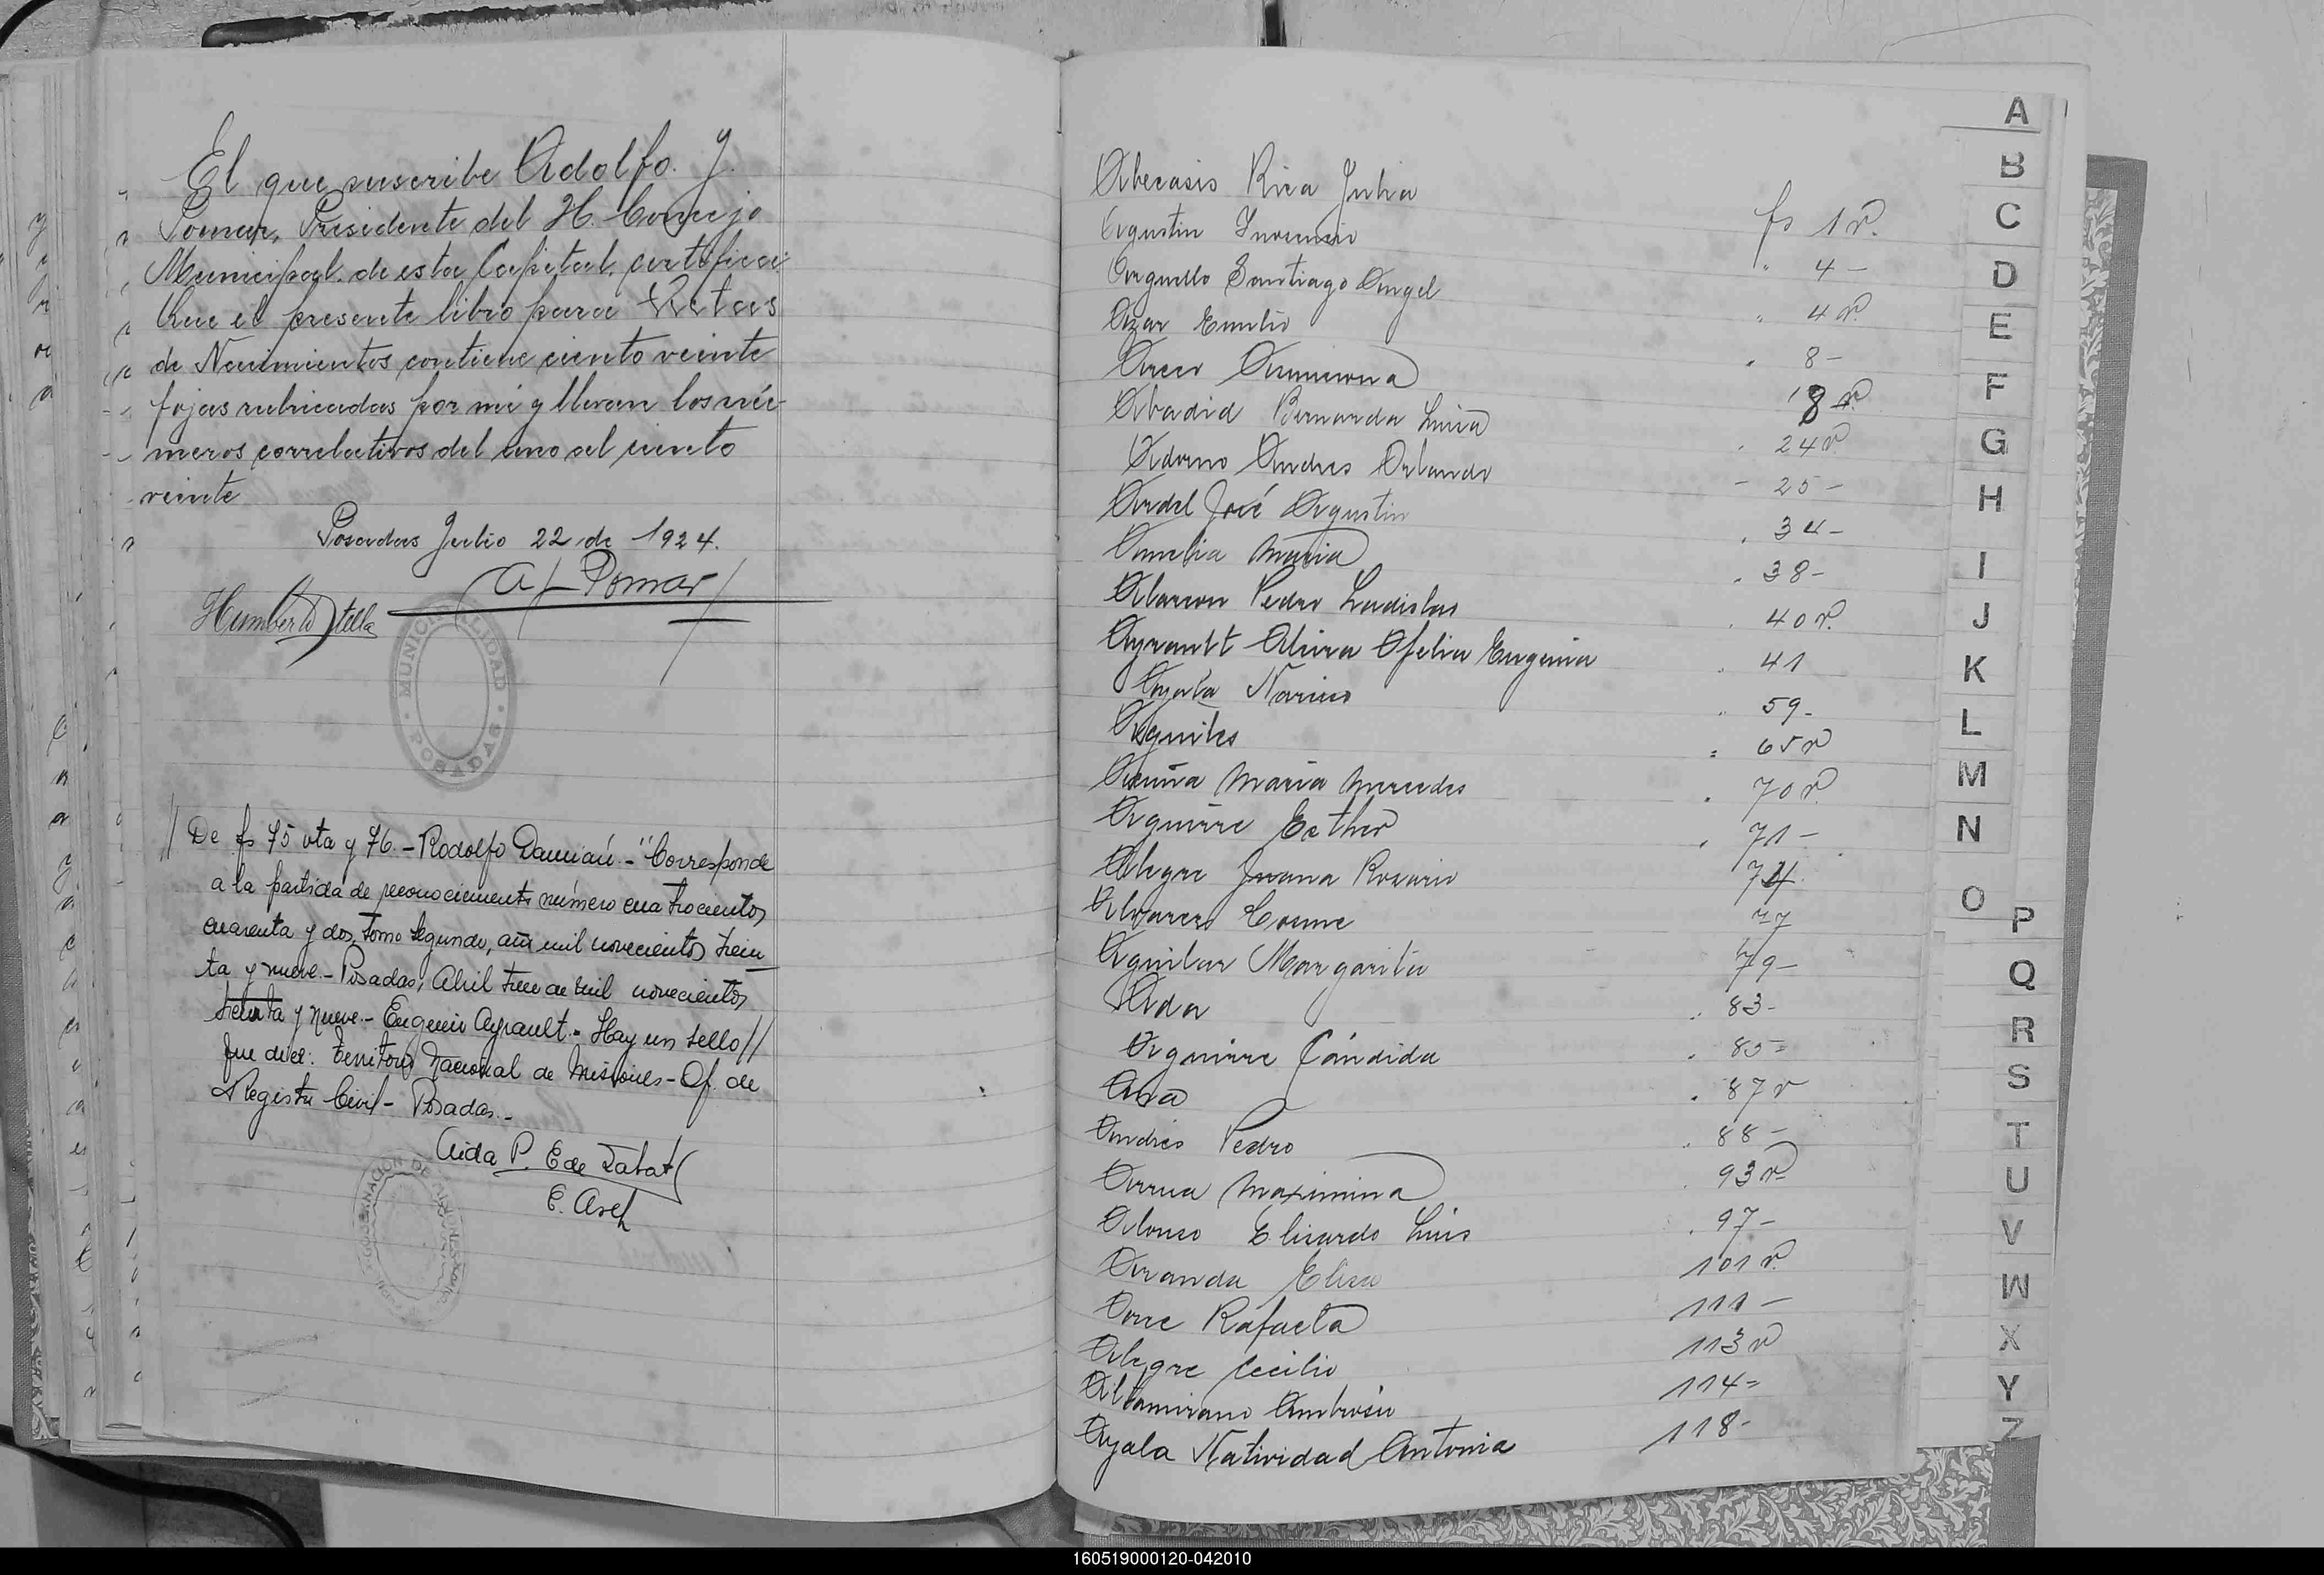 El que suscribe Adolfo. J.
Pomar, Presidente del H. Concejo
Municipal de esta Capital, certifica:
Que el presente libro para Actas
de Nacimientos contiene ciento veinte
fojas rubricadas por mi y llevan los nú-
meros correlativos del uno al ciento
veinte
Posadas Julio 22 de 1924.
A J Pomar
Humberto Stella
MUNICIPALIDAD
POSADAS
// De fs 75 vta y 76. - Rodolfo Damián. - "Corresponde
a la partida de reconocimiento número cuatrocientos
cuarenta y dos, tomo segundo, año mil novecientos trein
ta y nueve. - Posadas, Abril trece de mil novecientos
treinta y nueve. - Eugenio Ayrault. - Hay un sello //
que dice: Territorio Nacional de Misiones - Of. de
Registro Civil - Posadas. -
Aida P. E de
E. Asef
Abecasis Rica Julia fs 1 v.
Agustin Inocencio " 4 -
Arguello Santiago Angel " 4 v.
Azar Emilio " 8 -
Arece 18 v.
Abadid Bernarda Luisa " 24 v.
Adorno Andres Orlando - 25 -
Ardel José Agustin . 34 -
Amelia Maria . 38 -
Alarcon Pedro Ladislas . 40 v.
Ayrault Alcira Ofelia Eugenia . 41
Ayala Narciso " 59 -
Aquiles " 65 v
Acuña Maria Mercedes . 70 v.
Aguirre Esther . 71 -
Alegre Juana Rosario 74
Alvarez Cosme 77
Aguilar Margarita 79 -
Aida . 83 -
Aguirre Cándida . 85 =
Ana . 87 v
Andres Pedro . 88 -
Arrua Maximina . 93 v
Alonso Elicardo Luis . 97 -
Aranda Elisa 101 v.
Arce Rafaela 111 -
Alegre Cecilio 113 v
Altamirano Ambrosio 114 =
Ayala Natividad Antonia 118 -
A
B
C
D
E
F
G
H
I
J
K
L
M
N
O
P
Q
R
S
T
U
V
W
X
Y
Z
160519000120-042010